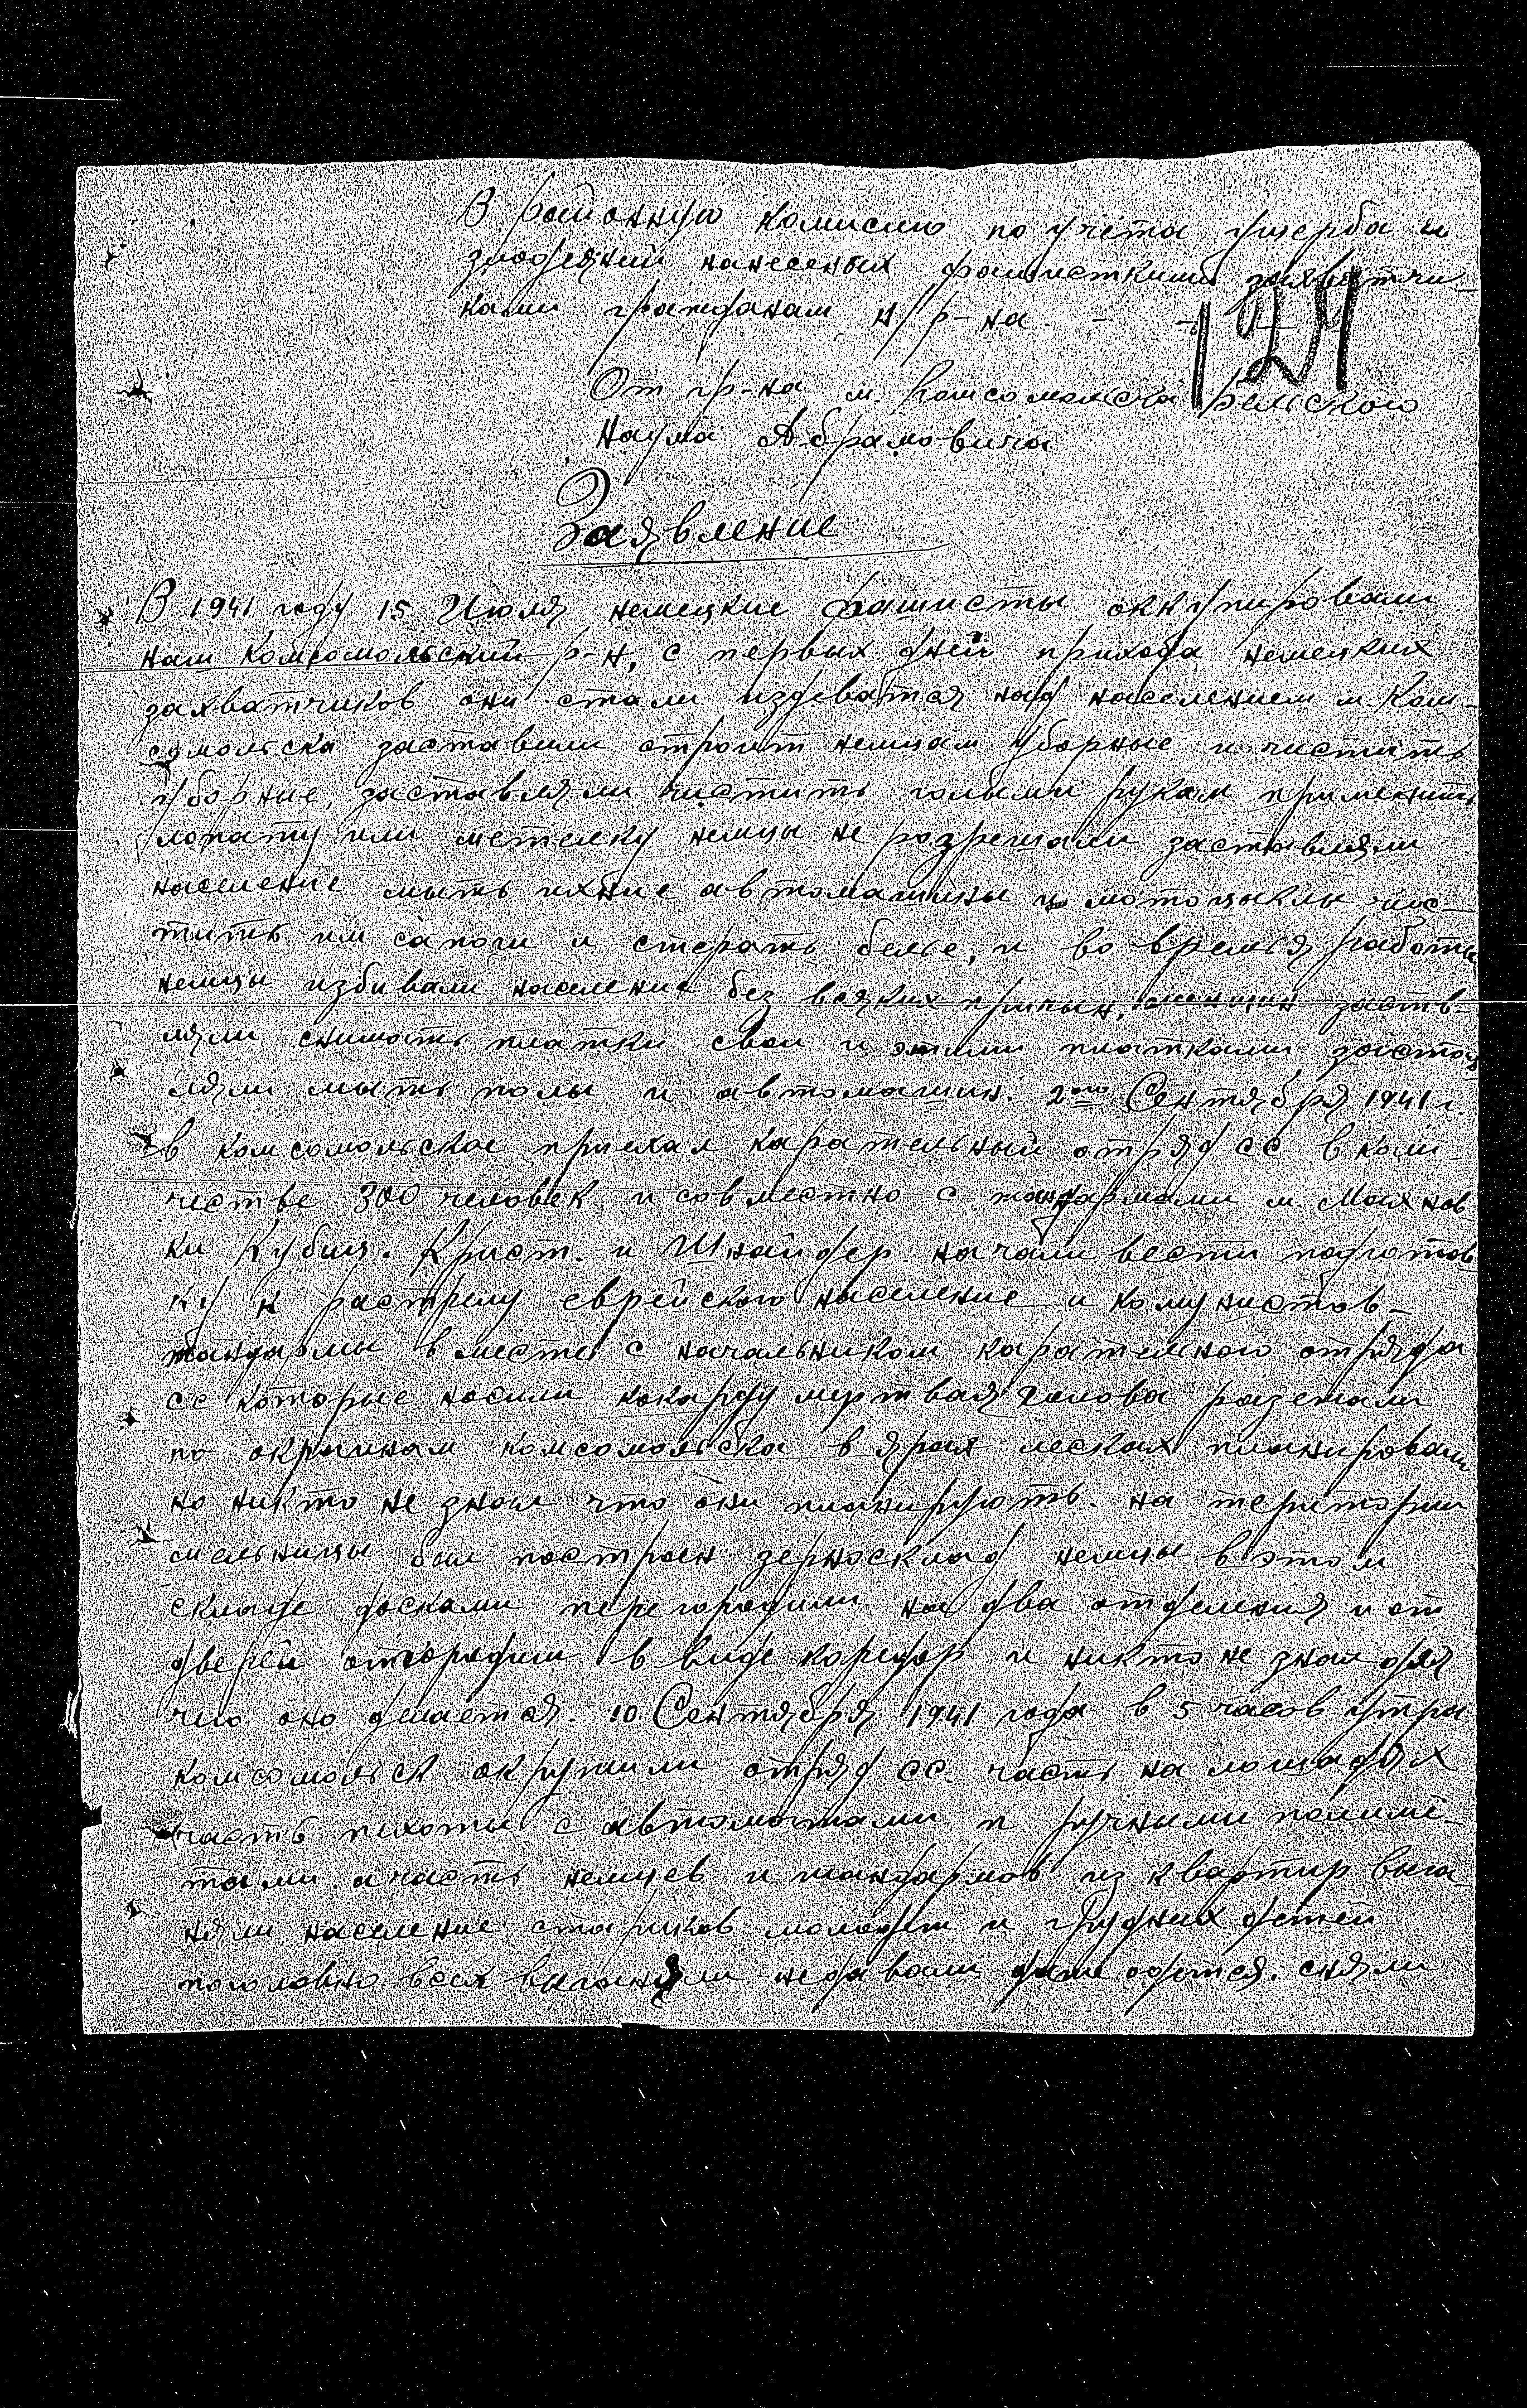 В районную комисию по учёта ущерба и
злодеяний нанесеных фашисткими захватчи-
ками гражданам К/р-на.
124
От гр-на м. Комсомольска Бельского
Наума Абрамовича
Заявление
В 1941 году 15 Июля немецкие фашисты оккупировали
наш Комсомольский р-н, с первых дней прихода немецких
захватчиков они стали издеватся над населением м. Ком-
сомольска заставили строит немцам уборные и чистить
уборные, заставляли чистить голыми рукам применить
лопату или метелку немцы не розрешали заставляли
население мыть ихние автомашины и мотоцыклы чис-
тить им сапоги и стерать белье, и во время работы
немцы избивали население без всяких причын, женщин застав-
ляли снимать платки свои и этими платками застав
ляли мыть полы и автомашин. 2ого Сентября 1941 г.
в комсомольское приехал карательный отряд СС в коли-
честве 300 человек и совместно с жандармами м. Махнов
ки Кубиц. Крист. и Шнайдер начали вести подготов
ку к растрелу еврейского население и комунистов-
жандармы вместе с начальником карательного отряда
СС которые носили кокарду мертвая голова разежали
по окраинам комсомольска в ярах лесках планировали
но никто не знал что они планирують. на територии
мельницы был построен зерносклад немцы в этом
складе досками перегородили на два отделения и от
дверей отгородили в виде коридор и никто не знал для
чего оно делается. 10 Сентября 1941 года в 5 часов утра
комсомольск окружили отряд СС. часть на лошадях
часть пихоты с автоматами и ручными полимё-
тами. а часть немцев и жандармов из квартир выга
няли население стариков молодёж и грудных детей
поголовно всех выганяли недавали даже одется. сняли